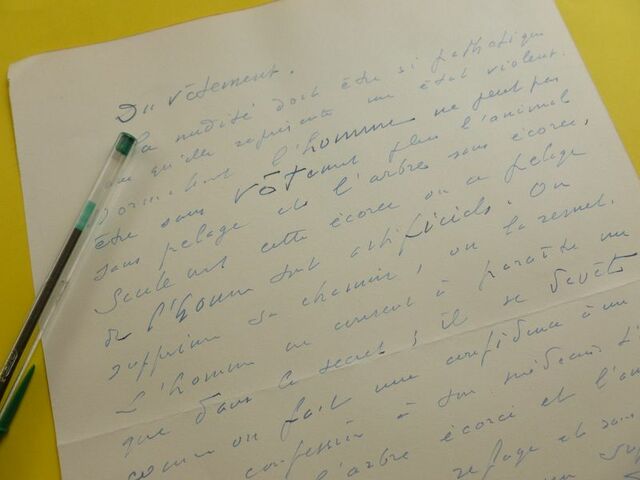 Du vêtement.
La nudité doit être si pathétique
que qu'elle représente un état violent.
Normalement l'homme ne peut pas
être sans vêtement plus l'animal
sans pelage et l'arbre sans écorce,
Seulement cette écorce ou ce pelage
de l'homme sont artificiels. On
supprime sa chemise, on la remet.
L'homme ne consent à paraître nu
que dans le secret ; il se dévêt
comme on fait une confidence à un
confession à son médecin
l'arbre écorcé et l'
pelage et